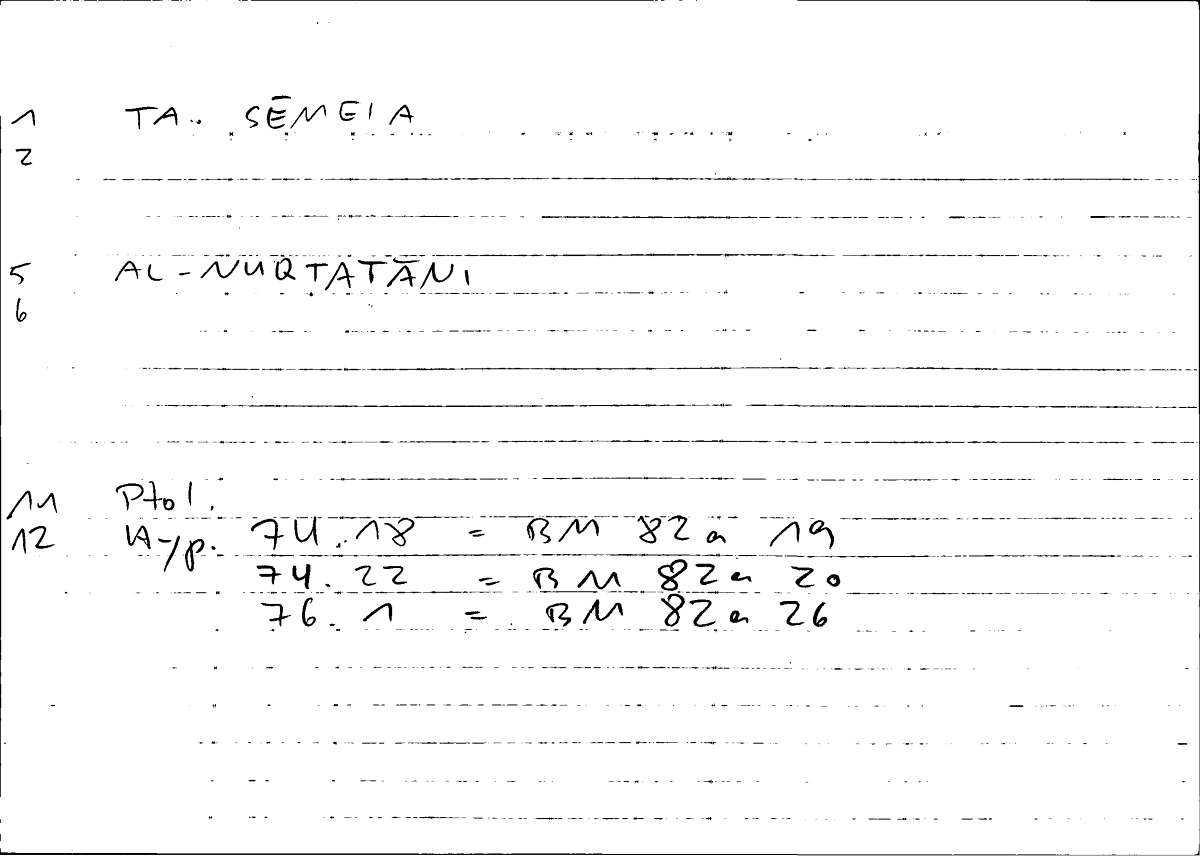 1 TA. SĒMEIA
2
5 AL-NUQṬATĀNI
6
11 Ptol.
12 Hyp. 74.18 = BM 82a 19
74.22 = BM 82a 20
76.1 = BM 82a 26